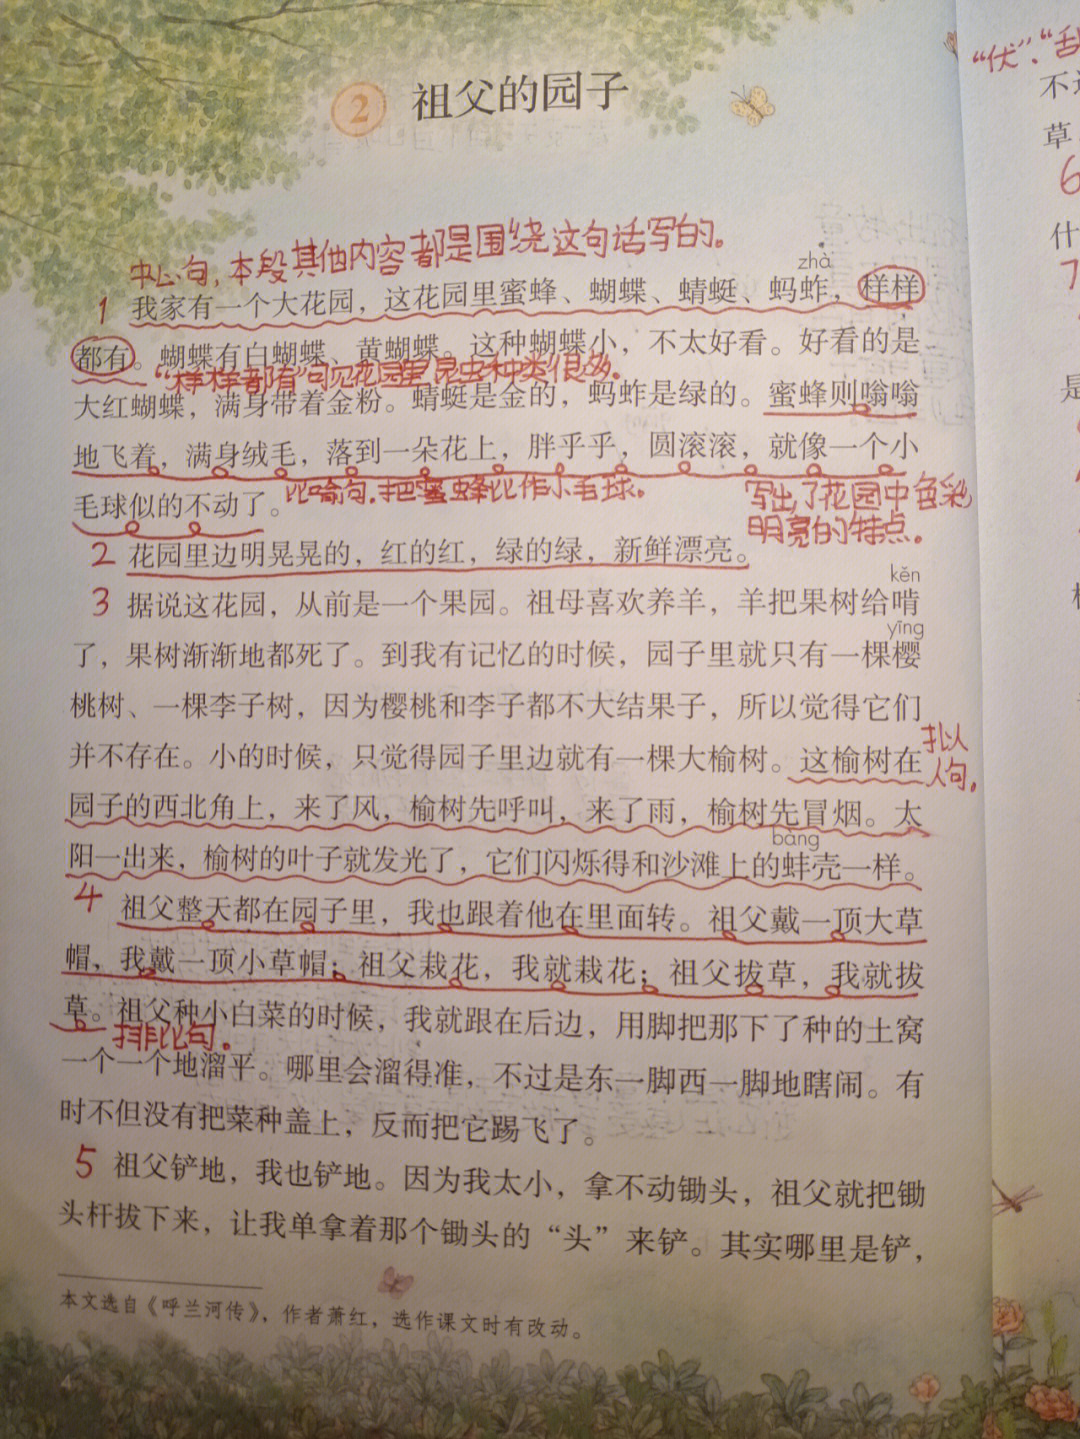 2 祖父的园子
中心句，本段其他内容都是围绕这句话写的。
zhà
1 我家有一个大花园，这花园里蜜蜂、蝴蝶、蜻蜓、蚂蚱，样样
都有。蝴蝶有白蝴蝶、黄蝴蝶。这种蝴蝶小，不太好看。好看的是
“样样都有”可见花园里昆虫种类很多。
大红蝴蝶，满身带着金粉。蜻蜓是金的，蚂蚱是绿的。蜜蜂则嗡嗡
地飞着，满身绒毛，落到一朵花上，胖乎乎，圆滚滚，就像一个小
毛球似的不动了。
比喻句.把蜜蜂比作小毛球。
写出了花园中色彩
明亮的特点。
2 花园里边明晃晃的，红的红，绿的绿，新鲜漂亮。
kěn
3 据说这花园，从前是一个果园。祖母喜欢养羊，羊把果树给啃
yīng
了，果树渐渐地都死了。到我有记忆的时候，园子里就只有一棵樱
桃树、一棵李子树，因为樱桃和李子都不大结果子，所以觉得它们
并不存在。小的时候，只觉得园子里边就有一棵大榆树。这榆树在
拟人
人句。
园子的西北角上，来了风，榆树先呼叫，来了雨，榆树先冒烟。太
bàng
阳一出来，榆树的叶子就发光了，它们闪烁得和沙滩上的蚌壳一样。
4 祖父整天都在园子里，我也跟着他在里面转。祖父戴一顶大草
帽，我戴一顶小草帽；祖父栽花，我就栽花；祖父拔草，我就拔
草。祖父种小白菜的时候，我就跟在后边，用脚把那下了种的土窝
排比句。
一个一个地溜平。哪里会溜得准，不过是东一脚西一脚地瞎闹。有
时不但没有把菜种盖上，反而把它踢飞了。
5 祖父铲地，我也铲地。因为我太小，拿不动锄头，祖父就把锄
头杆拔下来，让我单拿着那个锄头的“头”来铲。其实哪里是铲，
本文选自《呼兰河传》，作者萧红，选作课文时有改动。
“伏”、“乱
草
6
什
7
是